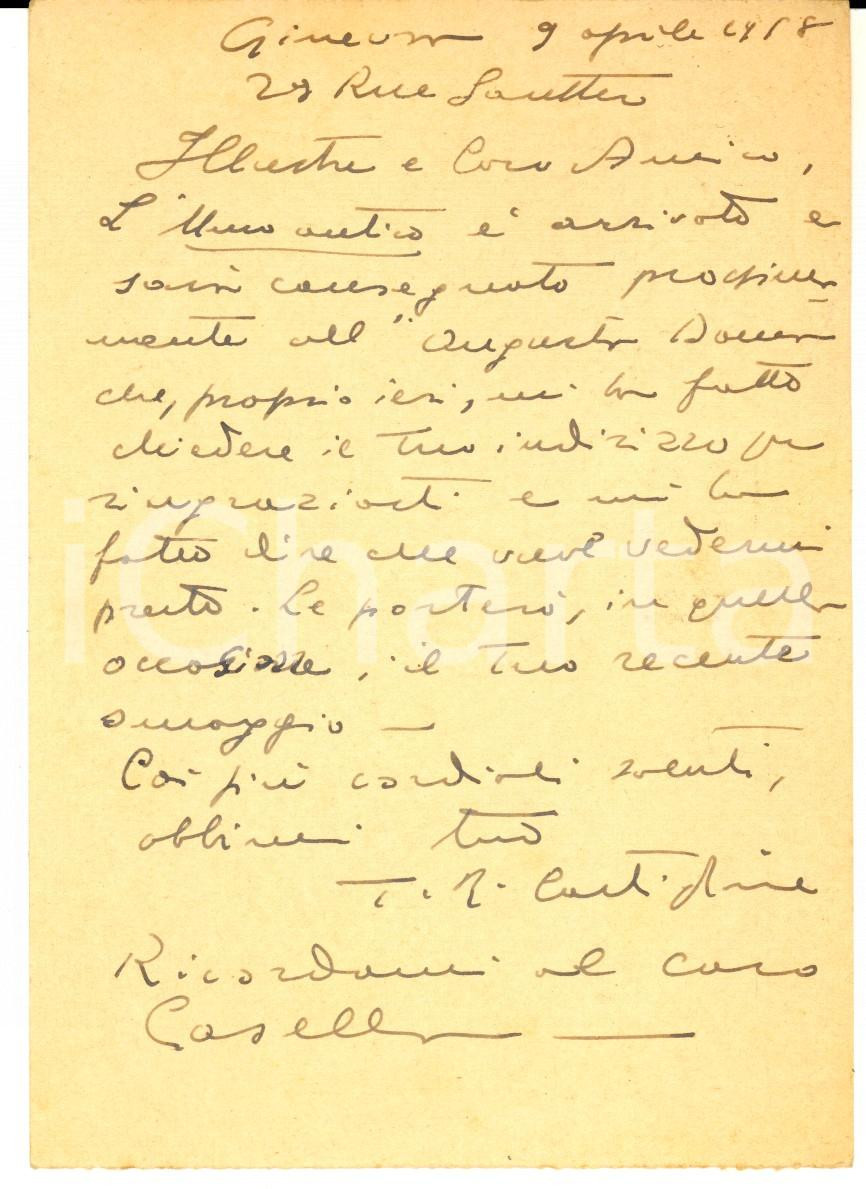 Ginevra 9 aprile 1958
29 Rue Sautter
Illustre e Caro Amico,
L'Uno antico e' arrivato e
sarà consegnato prossima-
mente all'"Augusta Donna
che, proprio ieri, mi ha fatto
chiedere il tuo indirizzo per
ringraziarti e mi ha
fatto dire che vuol vedermi
presto. Le porterò, in quella
occasione, il tuo recente
omaggio —
Coi più cordiali saluti,
abbimi tuo
T. R. Castiglione
Ricordami al caro
Casella —
iCharta